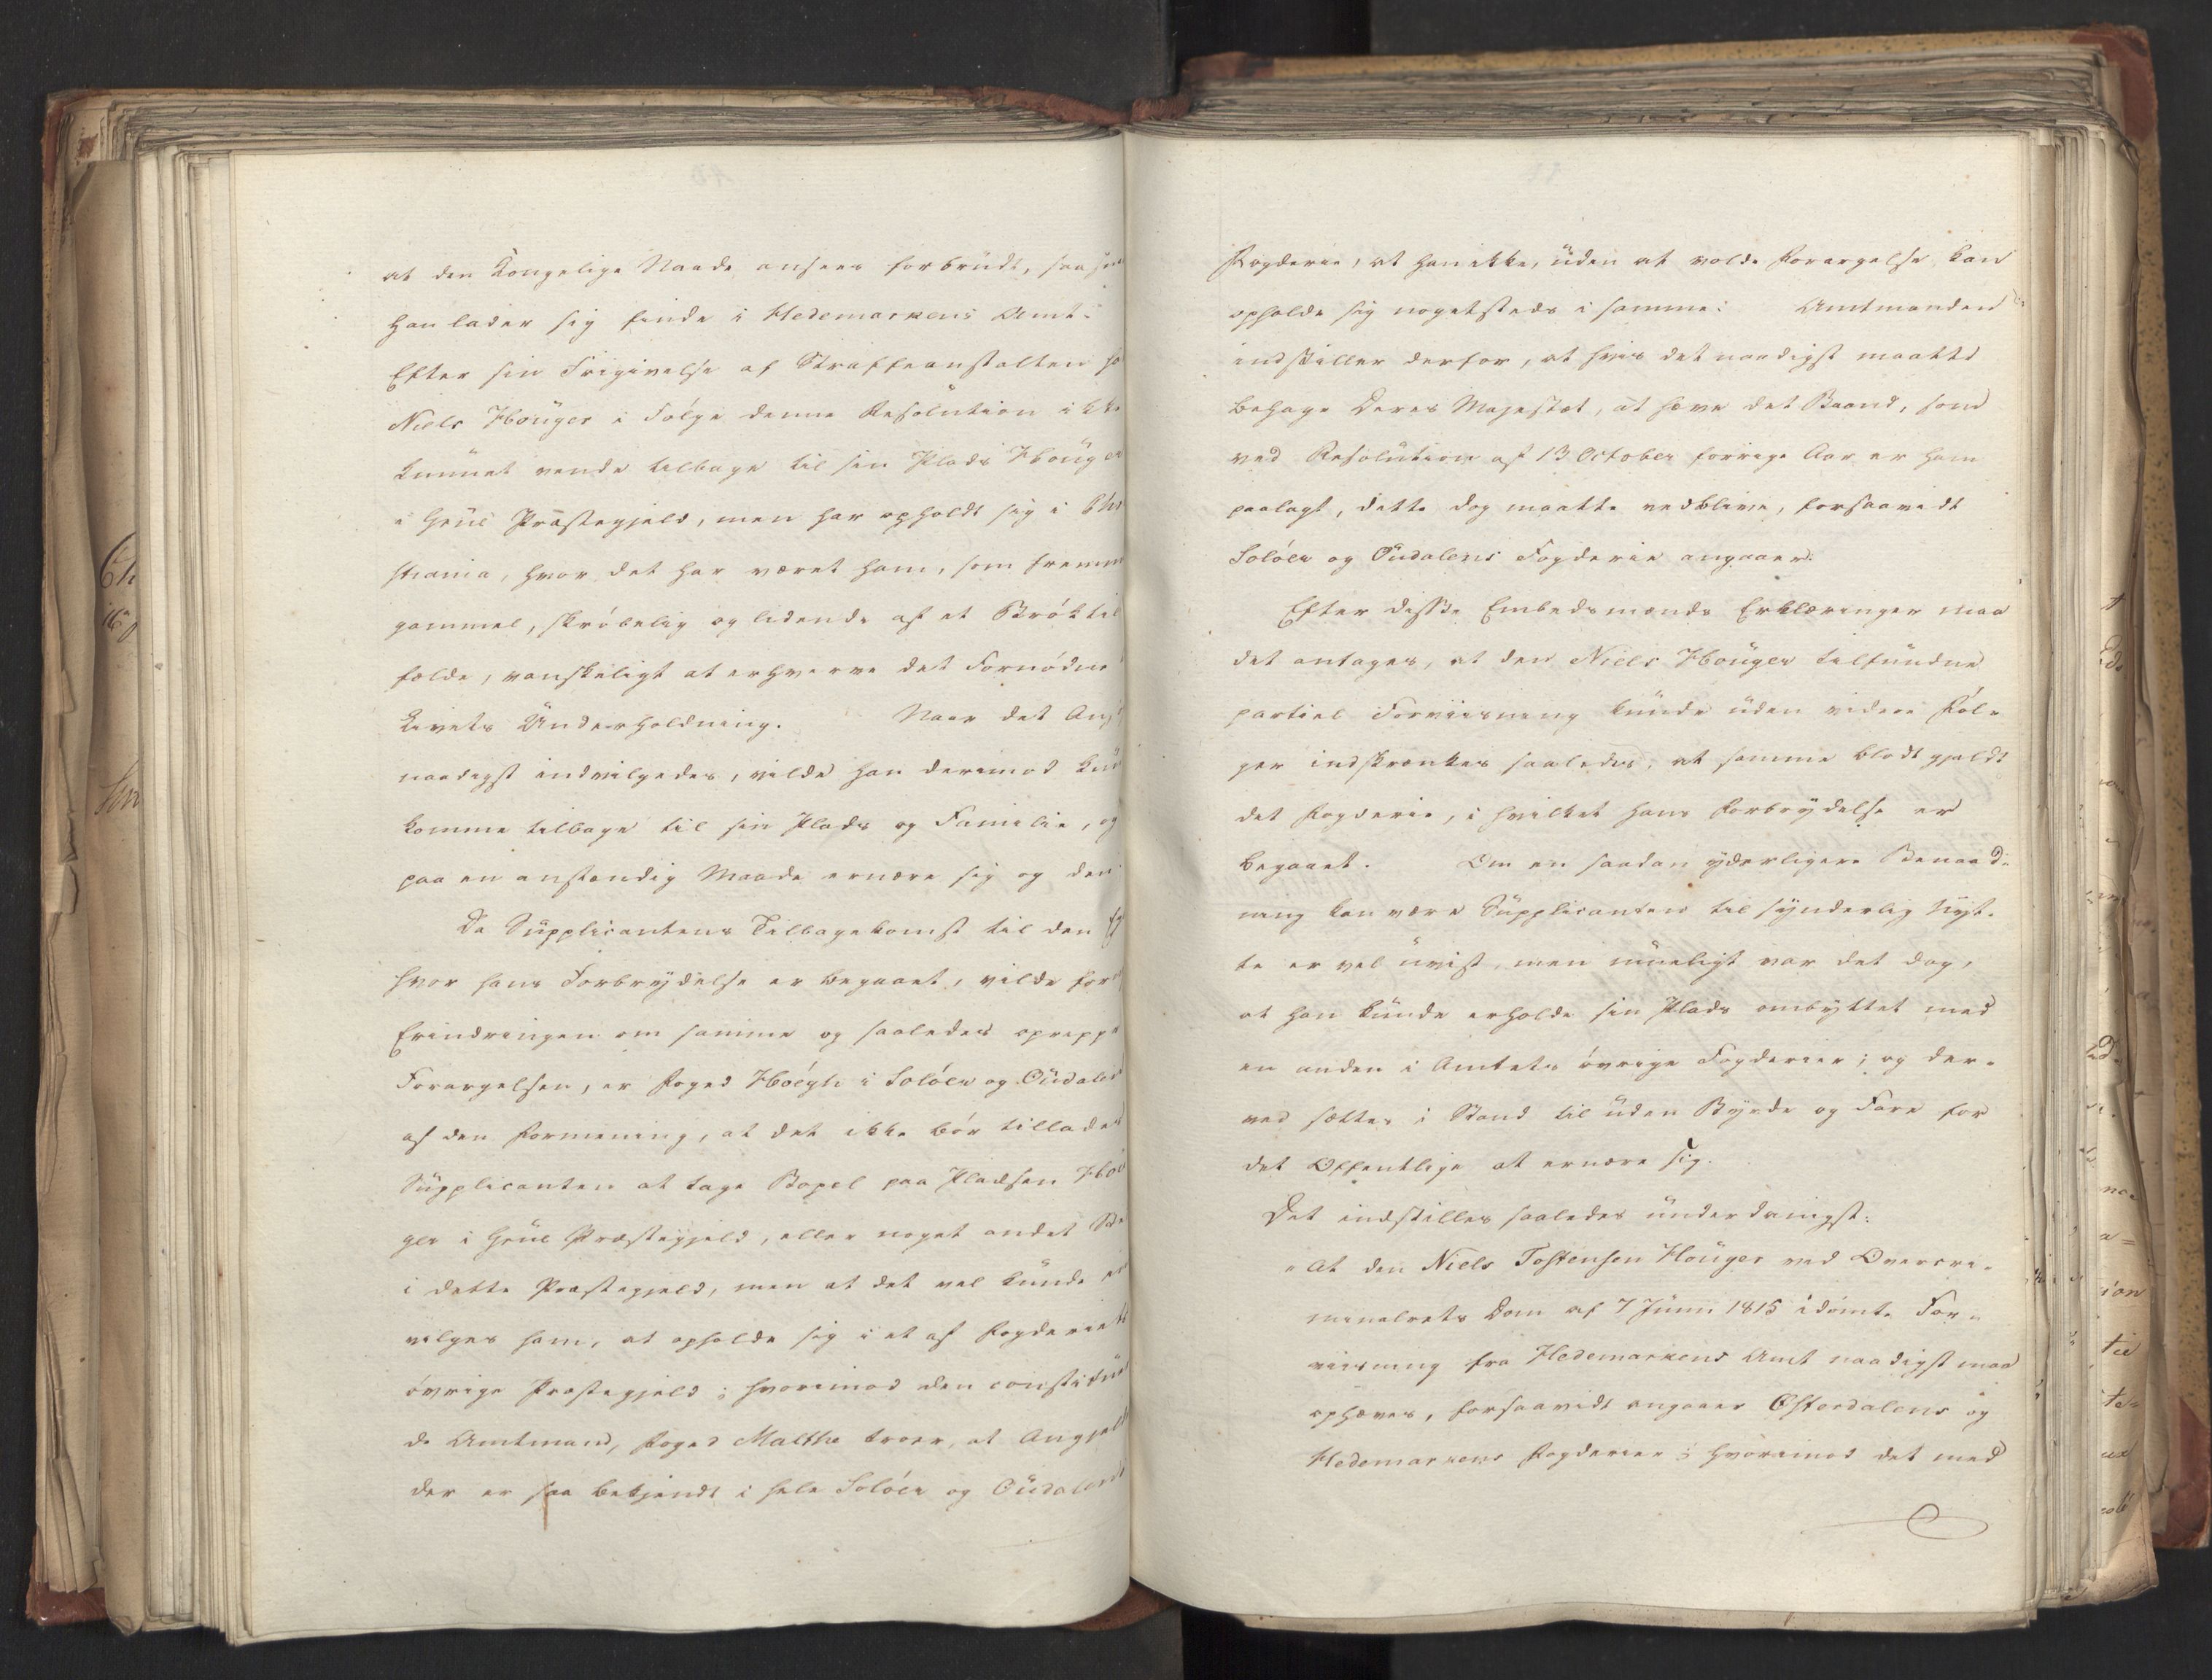 at den Kongelige Naade ansees forbrudt, saa
han lader sig finde i Hedemarkens Amt.
Efter sin Frigivelse af Straffeanstalten ha
Niels Houger i Følge denne Resolution ikke
kunnet vende tilbage til sin Plads Houger
i Grue Præstegjeld, men har opholdt sig i Chri
stiania, hvor det har været ham, som fremm
gammel, skrøbelig og lidende af et Bröktil
fælde, vanskeligt at erhverve det Fornødne
Livets Underholdning. Naar det An
naadigst indvilgedes, vilde han derimod kun
komme tilbage til sin Plads og Familie, og
paa en anstændig Maade ernære sig og den
Da Supplicantens Tilbagekomst til den
hvor hans Forbrydelse er begaaet, vilde for
Erindringen om samme og saaledes oprippe
Forargelsen, er Foged Høegh i Soløer og Oudalen
af den Formening, at det ikke bør tillades
Supplicanten at tage Bopel paa Pladsen Hou
ger i Grue Præstegjeld, eller noget andet Ste
i dette Præstegjeld, men at det vel kunde
vilges ham, at opholde sig i et af Fogderiets
øvrige Præstegjeld; hvorimod den constitue
de Amtmand, Foged Malthe troer, at Angjel
der er saa bekjendt i hele Soløer og Oudalens
Fogderie, at han ikke, uden at volde Forargelse kan
opholde sig nogetsteds i samme: Amtmanden
indstiller derfor, at hvis det naadigst maatte
behage Deres Majestæt, at hæve det Baand, som
ved Resolution af 13 October forrige Aar er ham
paalagt, dette dog maatte vedblive, forsaavidt
Soløer og Oudalens Fogderie angaaer.
Efter disse Embedsmænds Erklæringer maa
det antages, at den Niels Houger tilfundne
partiel Forviisning kunde uden videre Føl-
ger indskrænkes saaledes, at samme blodt gjeldt
det Fogderie, i hvilket hans Forbrydelse er
begaaet. Om en saadan yderligere Benaad-
ning kan være Supplicanten til synderlig Nyt-
te er vel uvist, men mueligt var det dog,
at han kunde erholde sin Plads ombyttet med
en anden i Amtets øvrige Fogderier; og der-
ved sættes i Stand til uden Byrde og Fare for
det Offentlige at ernære sig.
Det indstilles saaledes underdanigst:
"At den Niels Tostensen Houger ved Overcri-
minalrets Dom af 7 Juni 1815 idømte For-
viisning fra Hedemarkens Amt naadigst maa
ophæves, forsaavidt angaaer Østerdalens og
Hedemarkens Fogderier; hvorimod det med